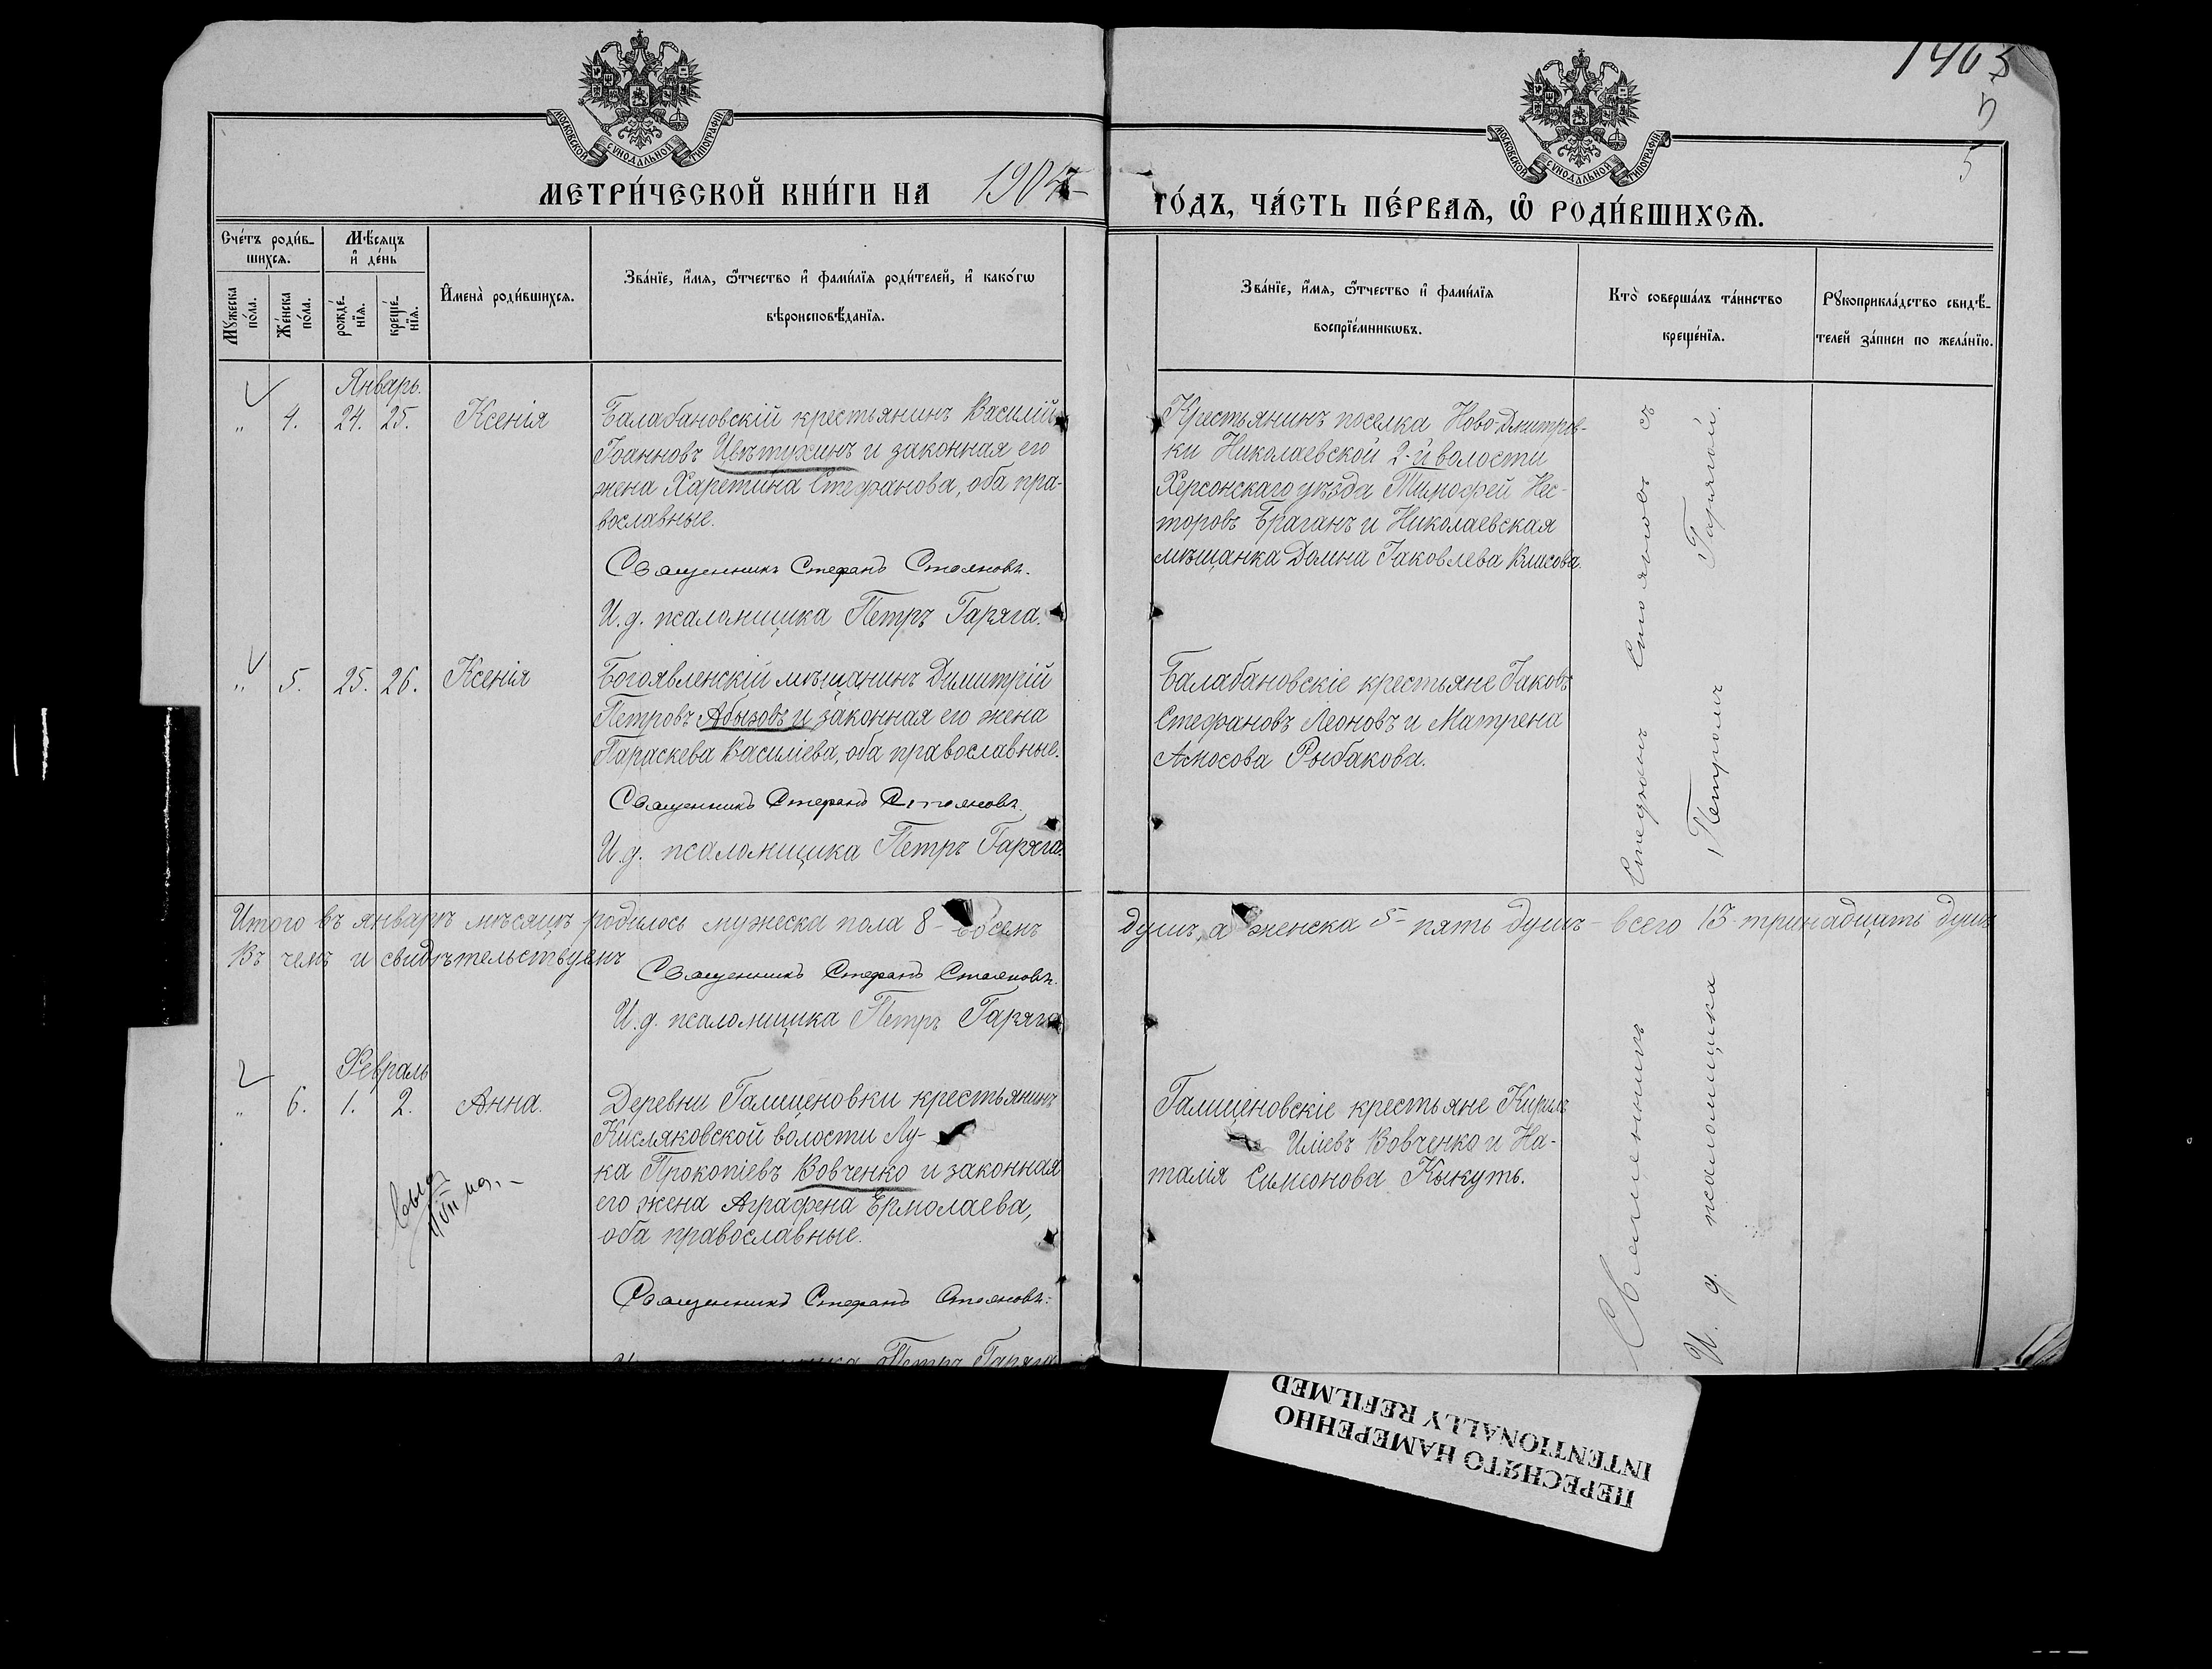 1903
5
5
МОСКОВСКОЙ СѴНОДАЛЬНОЙ ТИПОГРАФІИ
МОСКОВСКОЙ СѴНОДАЛЬНОЙ ТИПОГРАФІИ
МЕТРИ́ЧЕСКОЙ КНИ́ГИ НА 1904 ГО́ДЪ, ЧА́СТЬ ПЕ́РВАѦ, Ѽ РОДИ́ВШИХСѦ.
Сче́тъ роди́в-
шихсѧ.
Мꙋ́жеска
по́ла.
Же́нска
по́ла.
Мѣ́сѧцъ
и҆ де́нь
рожде́-
нїѧ.
креще́-
нїѧ.
И҆мена̀ роди́вшихсѧ.
Зва́нїе, и҆́мѧ, ѻ҆́тчество и҆ фами́лїѧ роди́телей, и҆ како́гѡ
вѣроисповѣ́данїѧ.
Зва́нїе, и҆́мѧ, ѻ҆́тчество и҆ фами́лїѧ
воспрїе́мникѡвъ.
Кто̀ соверша́лъ та́инство
креще́нїѧ.
Рꙋкоприкла́дство свидѣ́-
телей за́писи по жела́нїю.
Январь.
„ 4. 24. 25. Ксенія
Балабановскій крестьянинъ Василій
Іоанновъ Цвѣтухинъ и законная его
жена Харетина Стефанова, оба пра-
вославные.
Священникъ Стефанъ Стояновъ.
И. д. псаломщика Петръ Гаряга.
Крестьянинъ поселка Ново-Дмитров-
ки Николаевской 2-й волости
Херсонскаго уѣзда Тимофей Нес-
торовъ Браганъ и Николаевская
мѣщанка Домна Іаковлева Власова.
„ 5. 25. 26. Ксенія
Богоявленскій мѣщанинъ Димитрій
Петровъ Абызовъ и законная его жена
Параскева Василіева, оба православные.
Священникъ Стефанъ Стояновъ.
И. д. псаломщика Петръ Гаряга.
Балабановскіе крестьяне Іаковъ
Стефановъ Леоновъ и Матрена
Амосова Рыбакова.
Итого въ январѣ мѣсяцѣ родилось мужеска пола 8 - восемь душъ, а женска 5 - пять душъ - всего 13 - тринадцать душъ
Въ чемъ и свидѣтельствуемъ
Священникъ Стефанъ Стояновъ.
И. д. псаломщика Петръ Гаряга
Февраль
„ 6. 1. 2. Анна.
Деревни Галиценовки крестьянинъ
Кисляковской волости Лу-
ка Прокопіевъ Вовченко и законная
его жена Аграфена Ермолаева,
оба православные.
Священникъ Стефанъ Стояновъ.
Петръ Гаряга
Галиценовскіе крестьяне Кирилъ
Иліевъ Вовченко и На-
талія Симеонова Кыкуть.
Священникъ Стефанъ Стояновъ съ
И. д. псаломщика Петромъ Гарягой.
ПЕРЕСНЯТО НАМЕРЕННО
INTENTIONALLY REFILMED